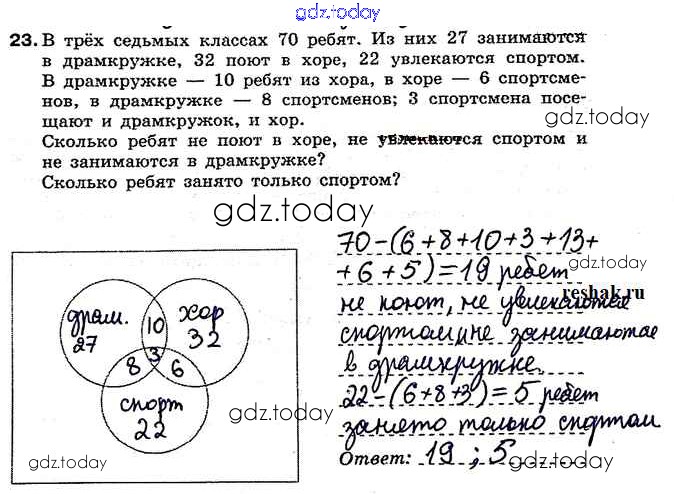 gdz.today
23. В трёх седьмых классах 70 ребят. Из них 27 занимаются
в драмкружке, 32 поют в хоре, 22 увлекаются спортом.
В драмкружке — 10 ребят из хора, в хоре — 6 спортсме-
нов, в драмкружке — 8 спортсменов; 3 спортсмена посе-
щают и драмкружок, и хор.
gdz.today
Сколько ребят не поют в хоре, не увлекаются спортом и
не занимаются в драмкружке?
Сколько ребят занято только спортом?
gdz.today
gdz.today
70-(6+8+10+3+13+
+6+5)=19 ребят
gdz.today
reshak.ru
не поют, не увлекаются
спортом, не занимаются
в драмкружке.
22-(6+8+3)=5 ребят
занято только спортом
gdz.today
Ответ: 19 ; 5.
gdz.today
драм.
27
10
хор
32
3
8
6
спорт
22
gdz.today
gdz.today